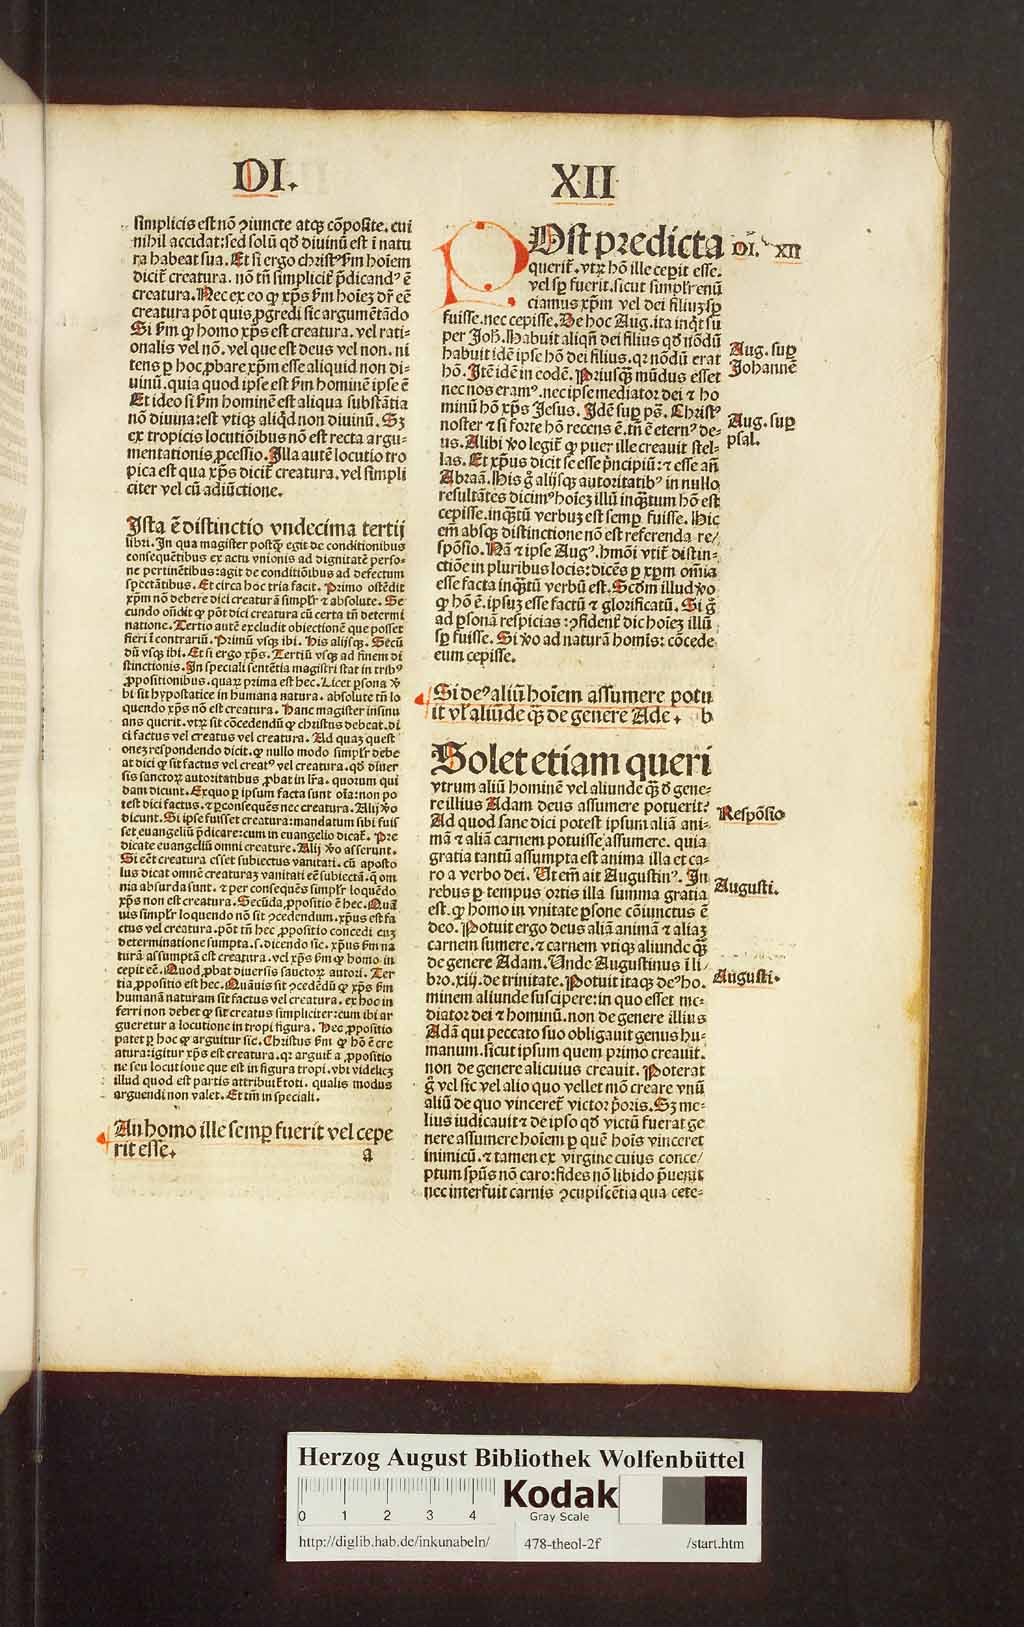 DI.
XII
simplicis est nõ ꝯiuncte atqꝫ cõposite. cui
nihil accidat: sed solũ qď diuinũ est ĩ natu
ra habeat sua. Et si ergo christꝰ ẜm hoĩem
dicit̃ creatura. nõ tñ simplicit̃ p̃dicandꝰ ẽ
creatura. Nec ex eo ꝙ xp̃s ẜm hoĩeꝫ dr̃ eẽ
creatura põt quis ꝓgredi sic argumẽtãdo
Si ẜm ꝙ homo xp̃s est creatura. vel rati-
onalis vel nõ. vel que est deus vel non. ni
tens ꝑ hoc ꝓbare xp̃m esse aliquid non di-
uinũ. quia quod ipse est ẜm hominẽ ipse ẽ
Et ideo si ẜm hominẽ est aliqua substãtia
nõ diuina: est vtiqꝫ aliqd non diuinũ. Sꝫ
ex tropicis locutiõibus nõ est recta argu-
mentationis ꝓcessio. Illa autẽ locutio tro
pica est qua xp̃s dicit̃ creatura. vel simpli
citer vel cũ adiũctione.
Ista ẽ distinctio vndecima tertij
libri. In qua magister postqꝫ egit de conditionibus
consequẽtibus ex actu vnionis ad dignitatẽ perso-
ne pertinẽtibus: agit de conditiõibus ad defectum
spectãtibus. Et circa hoc tria facit. Primo ostẽdit
xp̃m nõ debere dici creaturã simplr̃ ⁊ absolute. Se
cundo oñdit ꝙ põt dici creatura cũ certa tñ determi
natione. Tertio autẽ excludit obiectionẽ que posset
fieri ĩ contrariũ. Primũ vsqꝫ ibi. His alijsqꝫ. Secũ
dũ vsqꝫ ibi. Et si ergo xp̃s. Tertiũ vsqꝫ ad finem di
stinctionis. In speciali sentẽtia magistri stat in tribꝰ
ꝓpositionibus. quaꝝ prima est hec. Licet ꝑsona ꝟ
bi sit hypostatice in humana natura. absolute tñ lo
quendo xp̃s nõ est creatura. Hanc magister insinu
ans querit. vtꝝ sit cõcedendũ ꝙ christus debeat. di
ci factus vel creatus vel creatura. Ad quaꝫ quest
oneꝫ respondendo dicit. ꝙ nullo modo simplr̃ debe
at dici ꝙ sit factus vel creatꝰ vel creatura. qď diuer
sis sanctoꝝ autoritatibus ꝓbat in lr̃a. quorum qui
dam dicunt. Ex quo ꝑ ipsum facta sunt oĩa: non po
test dici factus. ⁊ ꝑ consequẽs nec creatura. Alij ꝟo
dicunt. Si ipse fuisset creatura: mandatum sibi fuis
set euangeliũ p̃dicare: cum in euangelio dicat̃. Pre
dicate euangeliũ omni creature. Alij ꝟo asserunt.
Si eẽt creatura esset subiectus vanitati. cũ aposto
lus dicat omnẽ creaturaꝫ vanitati eẽ subiectã. q̃ om
nia absurda sunt. ⁊ per consequẽs simplr̃ loquẽdo
xp̃s non est creatura. Secũda ꝓpositio ẽ hec. Quã
uis simplr̃ loquendo nõ sit ꝯcedendum. xp̃us est fa
ctus vel creatura. põt tñ hec ꝓpositio concedi cuꝫ
determinatione sumpta. s. dicendo sic. xp̃us ẜm na
turã assumptã est creatura. vel xp̃s ẜm ꝙ homo in
cepit eẽ. Quod ꝓbat diuersis sanctoꝝ autori. Ter
tia ꝓpositio est hec. Quãuis sit ꝯcedẽdũ ꝙ xp̃s ẜm
humanã naturam sit factus vel creatura. ex hoc in
ferri non debet ꝙ sit creatus simpliciter: cum ibi ar
gueretur a locutione in tropi figura. Hec ꝓpositio
patet ꝑ hoc ꝙ arguitur sic. Christus ẜm ꝙ hõ ẽ cre
atura: igitur xp̃s est creatura. qꝛ arguit̃ a ꝓpositio
ne seu locutione que est in figura tropi. vbi videlicꝫ
illud quod est partis attribuit̃ toti. qualis modus
arguendi non valet. Et tm̃ in speciali.
An homo ille semꝑ fuerit vel cepe
rit esse.
a
POst predicta
querit̃. vtꝝ hõ ille cepit esse.
vel sꝑ fuerit. sicut simplr̃ enũ
ciamus xp̃m vel dei filiuꝫ sꝑ
fuisse. nec cepisse. De hoc Aug. ita inq̃t su
per Joh̃. Habuit aliqñ dei filius qď nõdũ
habuit idẽ ipse hõ dei filius. qꝛ nõdũ erat
hõ. Itẽ idẽ in eodẽ. Priusqꝫ mũdus esset
nec nos eramꝰ. nec ipse mediator dei ⁊ ho
minũ hõ xp̃s Jesus. Idẽ suꝑ ps̃. Christꝰ
noster ⁊ si forte hõ recens ẽ. tñ ẽ eternꝰ de-
us. Alibi ꝟo legit̃ ꝙ puer ille creauit stel-
las. Et xp̃us dicit se esse p̃ncipiũ: ⁊ esse añ
Abraã. His g̃ alijsqꝫ autoritatibꝰ in nullo
resultãtes dicimꝰ hoĩeꝫ illũ inqꝫtum hõ est
cepisse. inqꝫtũ verbuꝫ est semꝑ fuisse. Hic
em̃ absqꝫ distinctione nõ est referenda re/
spõsio. Nã ⁊ ipse Augꝰ. hmõi vtit̃ distin-
ctiõe in pluribus locis: dicẽs ꝑ xp̃m om̃ia
esse facta inqꝫtũ verbũ est. Scďm illud ꝟo
ꝙ hõ ẽ. ipsuꝫ esse factũ ⁊ glorificatũ. Si g̃
ad ꝑsonã respicias: ꝯfident̃ dic hoĩeꝫ illũ
sꝑ fuisse. Si ꝟo ad naturã homĩs: cõcede
eum cepisse.
Si deꝰ aliũ hoĩem assumere potu
it vl̃ aliũde qꝫ de genere Ade. b
Solet etiam queri
vtrum aliũ hominẽ vel aliunde qꝫ ď gene-
re illius Adam deus assumere potuerit?
Ad quod sane dici potest ipsum aliã ani-
mã ⁊ aliã carnem potuisse assumere. quia
gratia tantũ assumpta est anima illa et ca-
ro a verbo dei. Ut em̃ ait Augustinꝰ. In
rebus ꝑ tempus ortis illa summa gratia
est. ꝙ homo in vnitate ꝑsone cõiunctus ẽ
deo. Potuit ergo deus aliã animã ⁊ aliaꝫ
carnem sumere. ⁊ carnem vtiqꝫ aliunde qꝫ
de genere Adam. Unde Augustinus ĩ li/
bro. xiij. de trinitate. Potuit itaqꝫ deꝰ ho-
minem aliunde suscipere: in quo esset me-
diator dei ⁊ hominũ. non de genere illius
Adã qui peccato suo obligauit genus hu-
manum. sicut ipsum quem primo creauit.
non de genere alicuius creauit. Poterat
g̃ vel sic vel alio quo vellet mõ creare vnũ
aliũ de quo vinceret̃ victor p̃oris. Sꝫ me-
lius iudicauit ⁊ de ipso qď victũ fuerat ge
nere assumere hoĩem ꝑ quẽ hoĩs vinceret
inimicũ. ⁊ tamen ex virgine cuius conce/
ptum sp̃us nõ caro: fides nõ libido p̃uenit
nec interfuit carnis ꝯcupiscẽtia qua cete-
DI. XII
Aug. suꝑ
Johannẽ
Aug. suꝑ
psal.
Respõsio
Augusti.
Augusti.
Herzog August Bibliothek Wolfenbüttel
0 1 2 3 4
Kodak
Gray Scale
http://diglib.hab.de/inkunabeln/ 478-theol-2f /start.htm